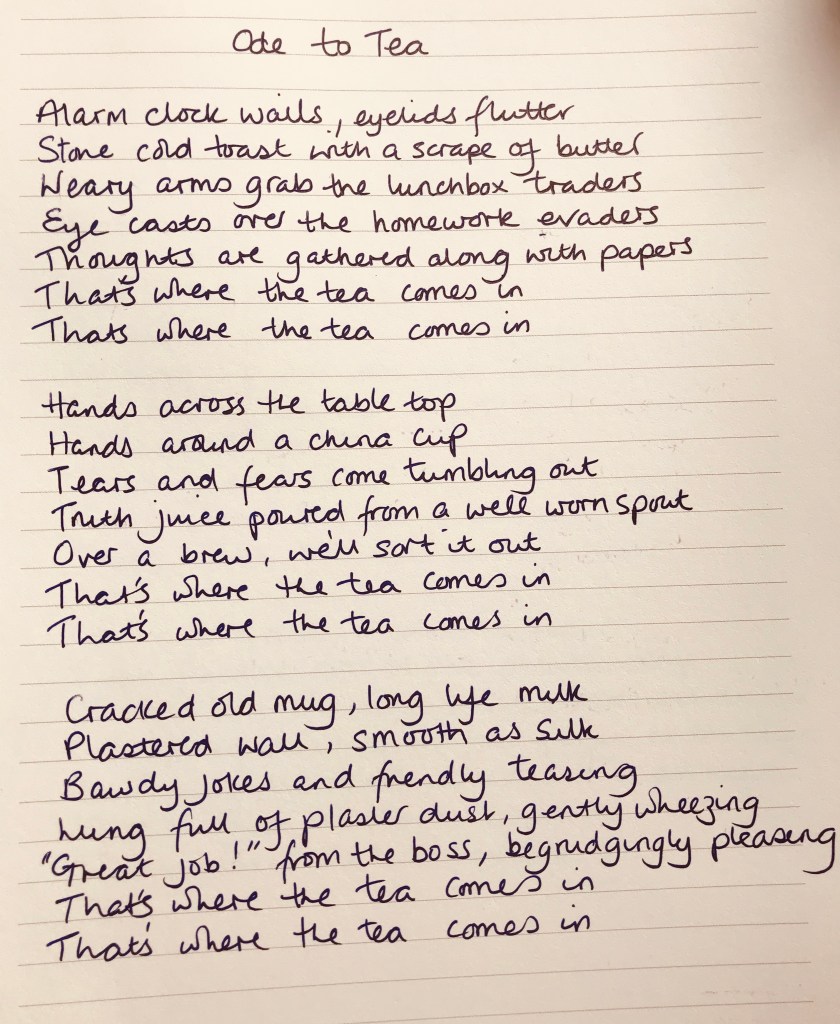 Ode to Tea
Alarm clock wails, eyelids flutter
Stone cold toast with a scrape of butter
Weary arms grab the lunchbox traders
Eye casts over the homework evaders
Thoughts are gathered along with papers
That's where the tea comes in
Thats where the tea comes in
Hands across the table top
Hands around a china cup
Tears and fears come tumbling out
Truth juice poured from a well worn spout
Over a brew, we'll sort it out
That's where the tea comes in
That's where the tea comes in
Cracked old mug, long life milk
Plastered wall, smooth as silk
Bawdy jokes and friendly teasing
Lung full of plaster dust, gently wheezing
"Great job!" from the boss, begrudgingly pleasing
That's where the tea comes in
That's where the tea comes in